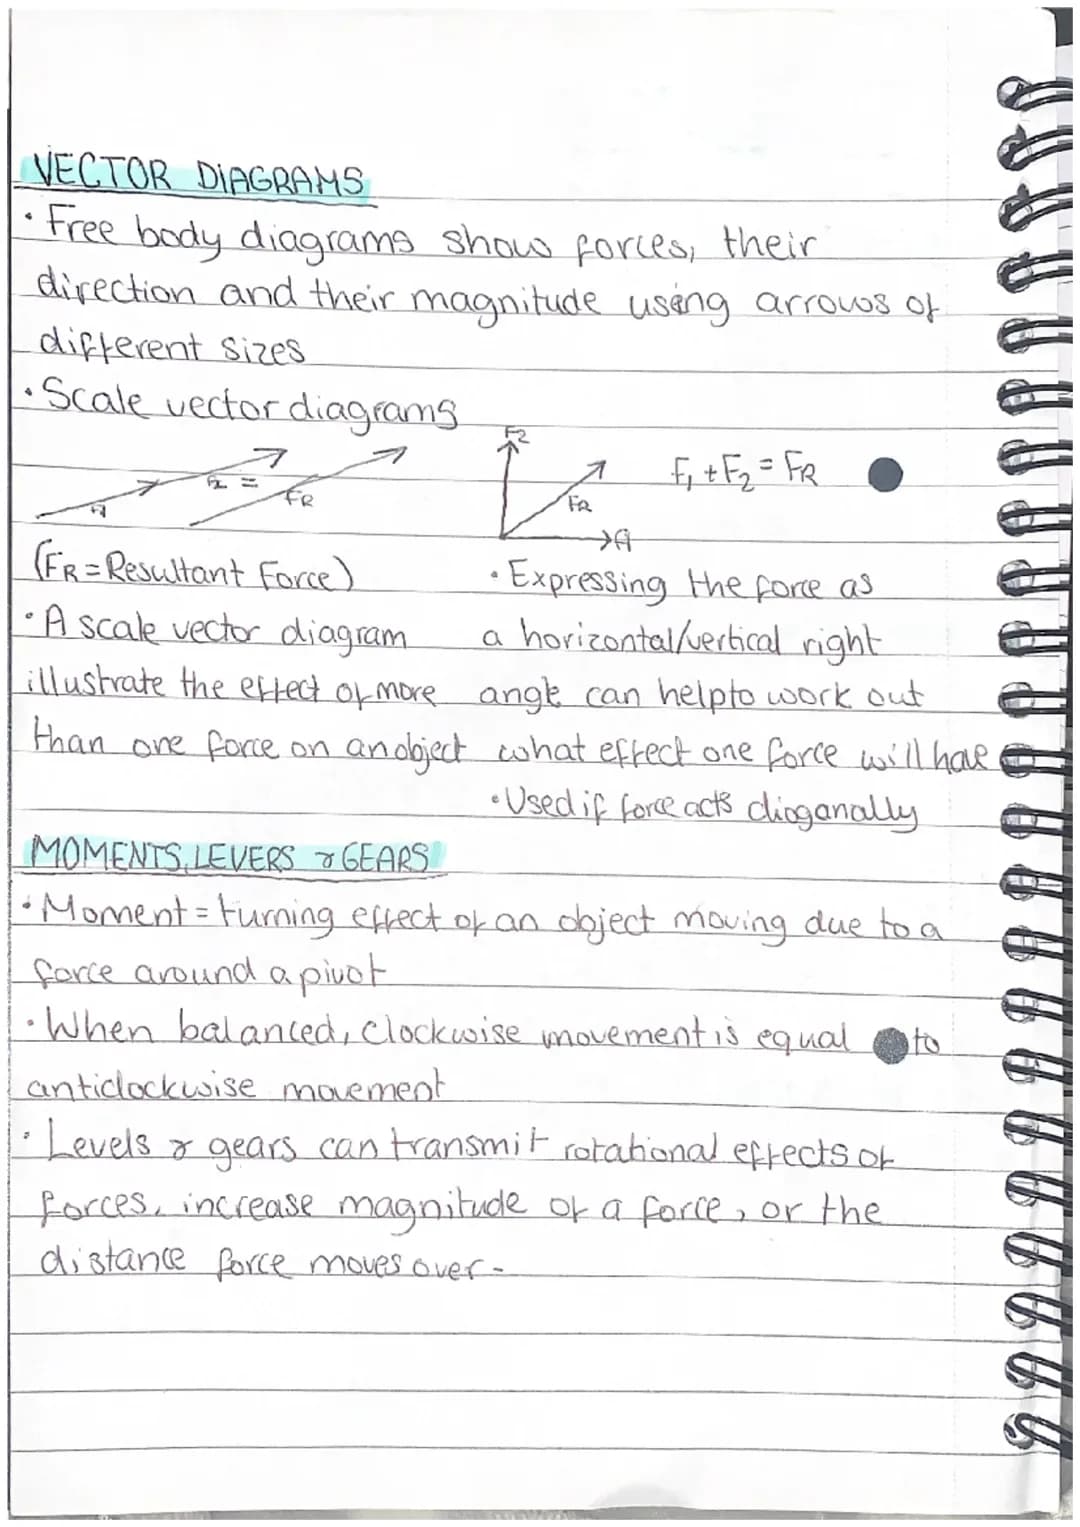 VECTOR DIAGRAMS
• Free body diagrams show forces, their
direction and their magnitude using arrows of
different sizes
• Scale vector diagrams
F1 F2 = FR
F2 FR F1
F1 + F2 = FR
(FR = Resultant Force)
• A scale vector diagram
illustrate the effect of more
than one force on an object
• Expressing the force as
a horizontal/vertical right
angle can help to work out
what effect one force will have
• Used if force acts dioganally
MOMENTS, LEVERS & GEARS
• Moment = turning effect of an object moving due to a
force around a pivot
• When balanced, clockwise movement is equal to
anticlockwise movement
• Levels & gears can transmit rotational effects of
forces, increase magnitude of a force, or the
distance force moves over.